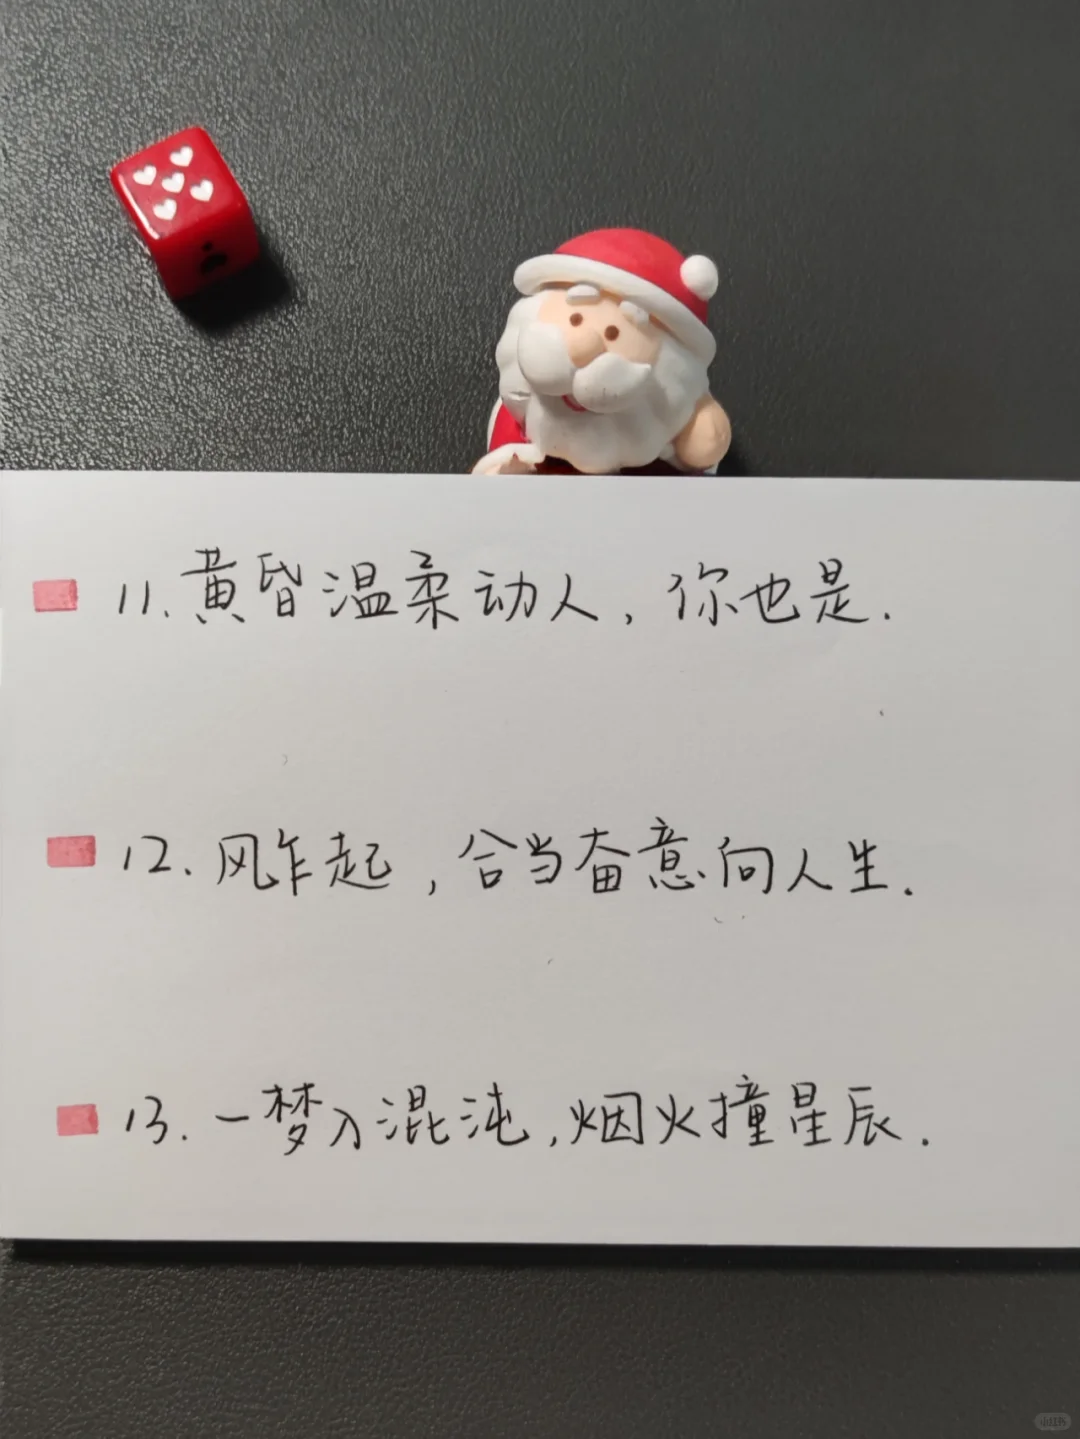 11.黄昏温柔动人,你也是.
12.风乍起,合当奋意向人生.
13.一梦入混沌,烟火撞星辰.
小红书